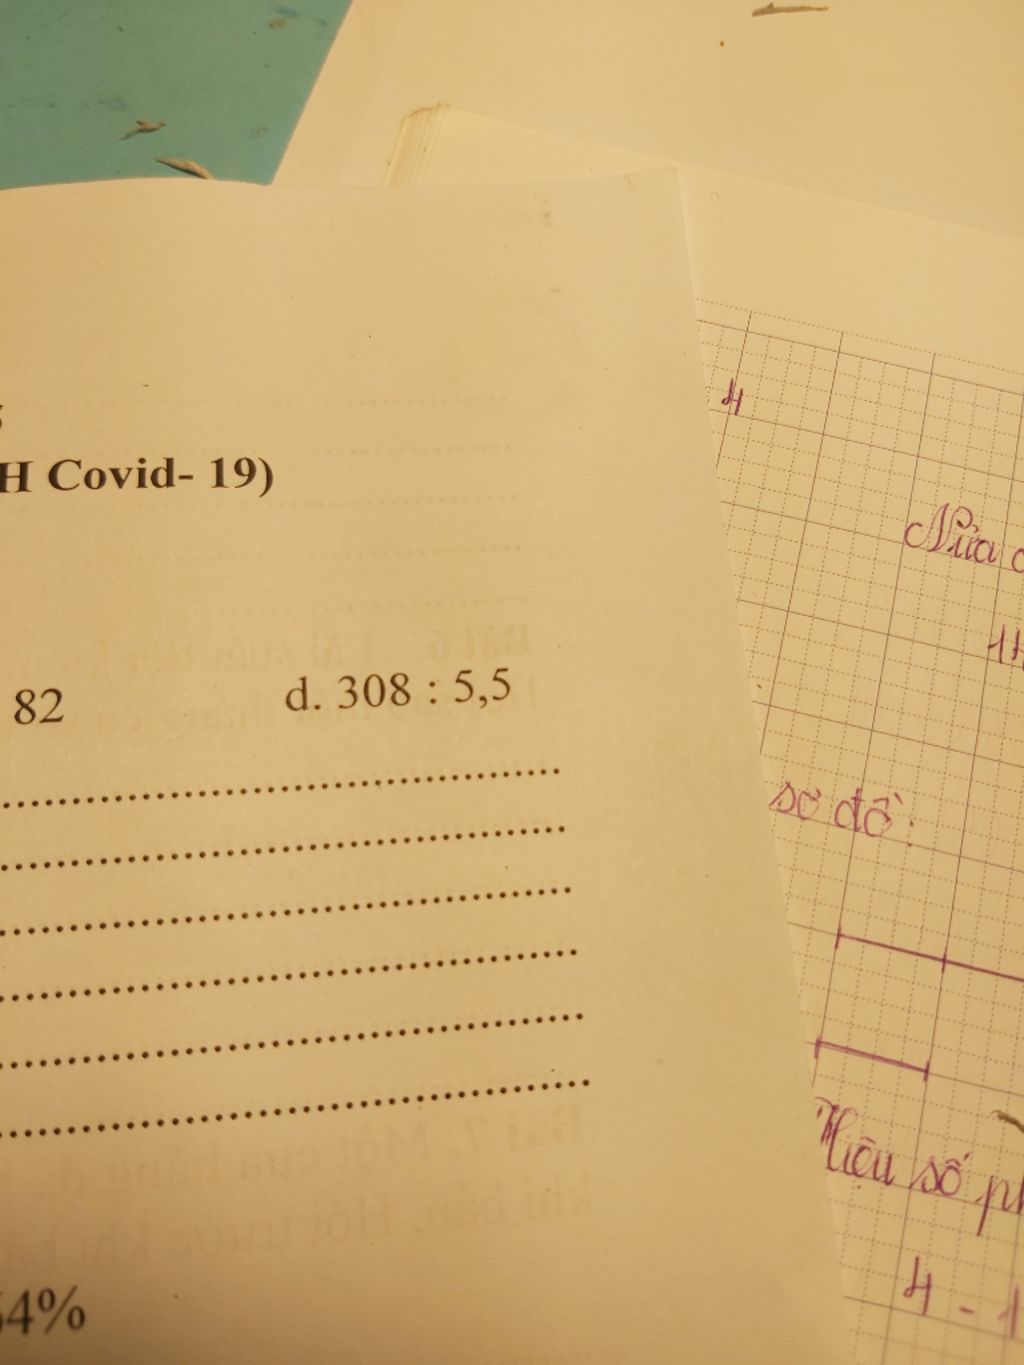 H Covid- 19)
82 d. 308 : 5,5
4%
4
Nửa
sơ đồ:
Hiệu số ph
4 - 1